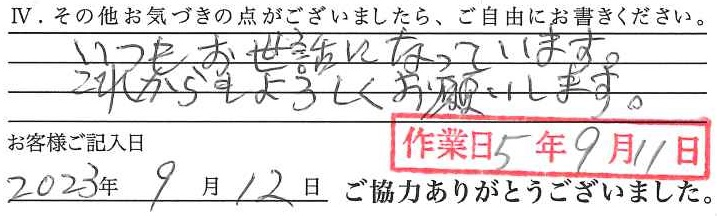 Ⅳ．その他お気づきの点がございましたら、ご自由にお書きください。
いつもお世話になっています。
これからもよろしくお願いします。
お客様ご記入日
作業日5年9月11日
2023年 9月12日 ご協力ありがとうございました。